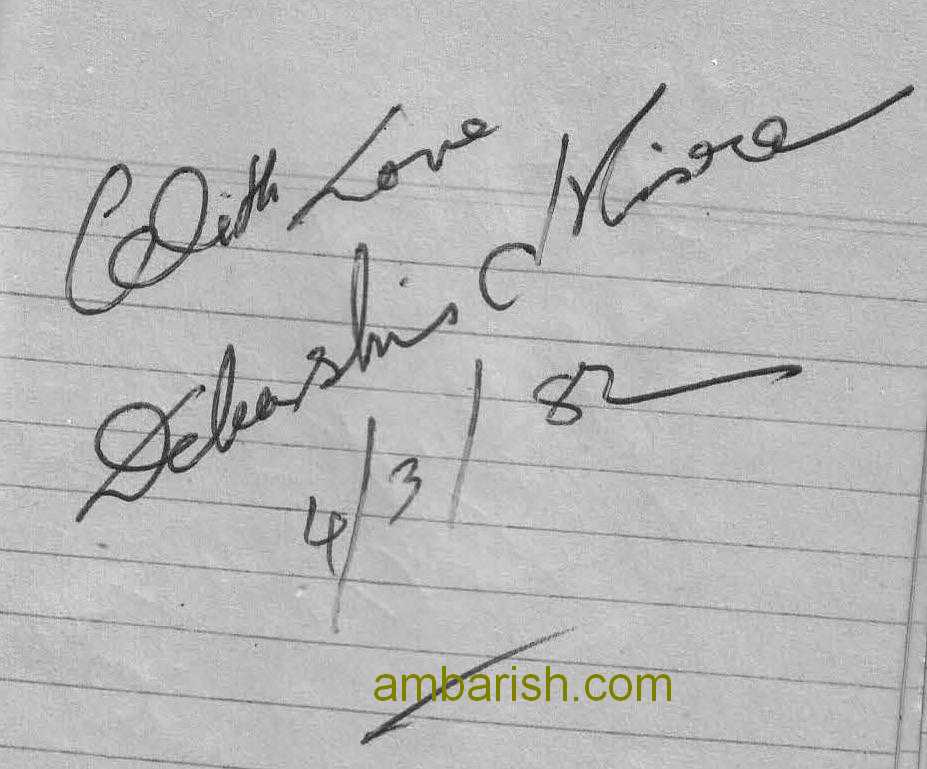 With Love
Debashis C Misra
4/3/82
ambarish.com